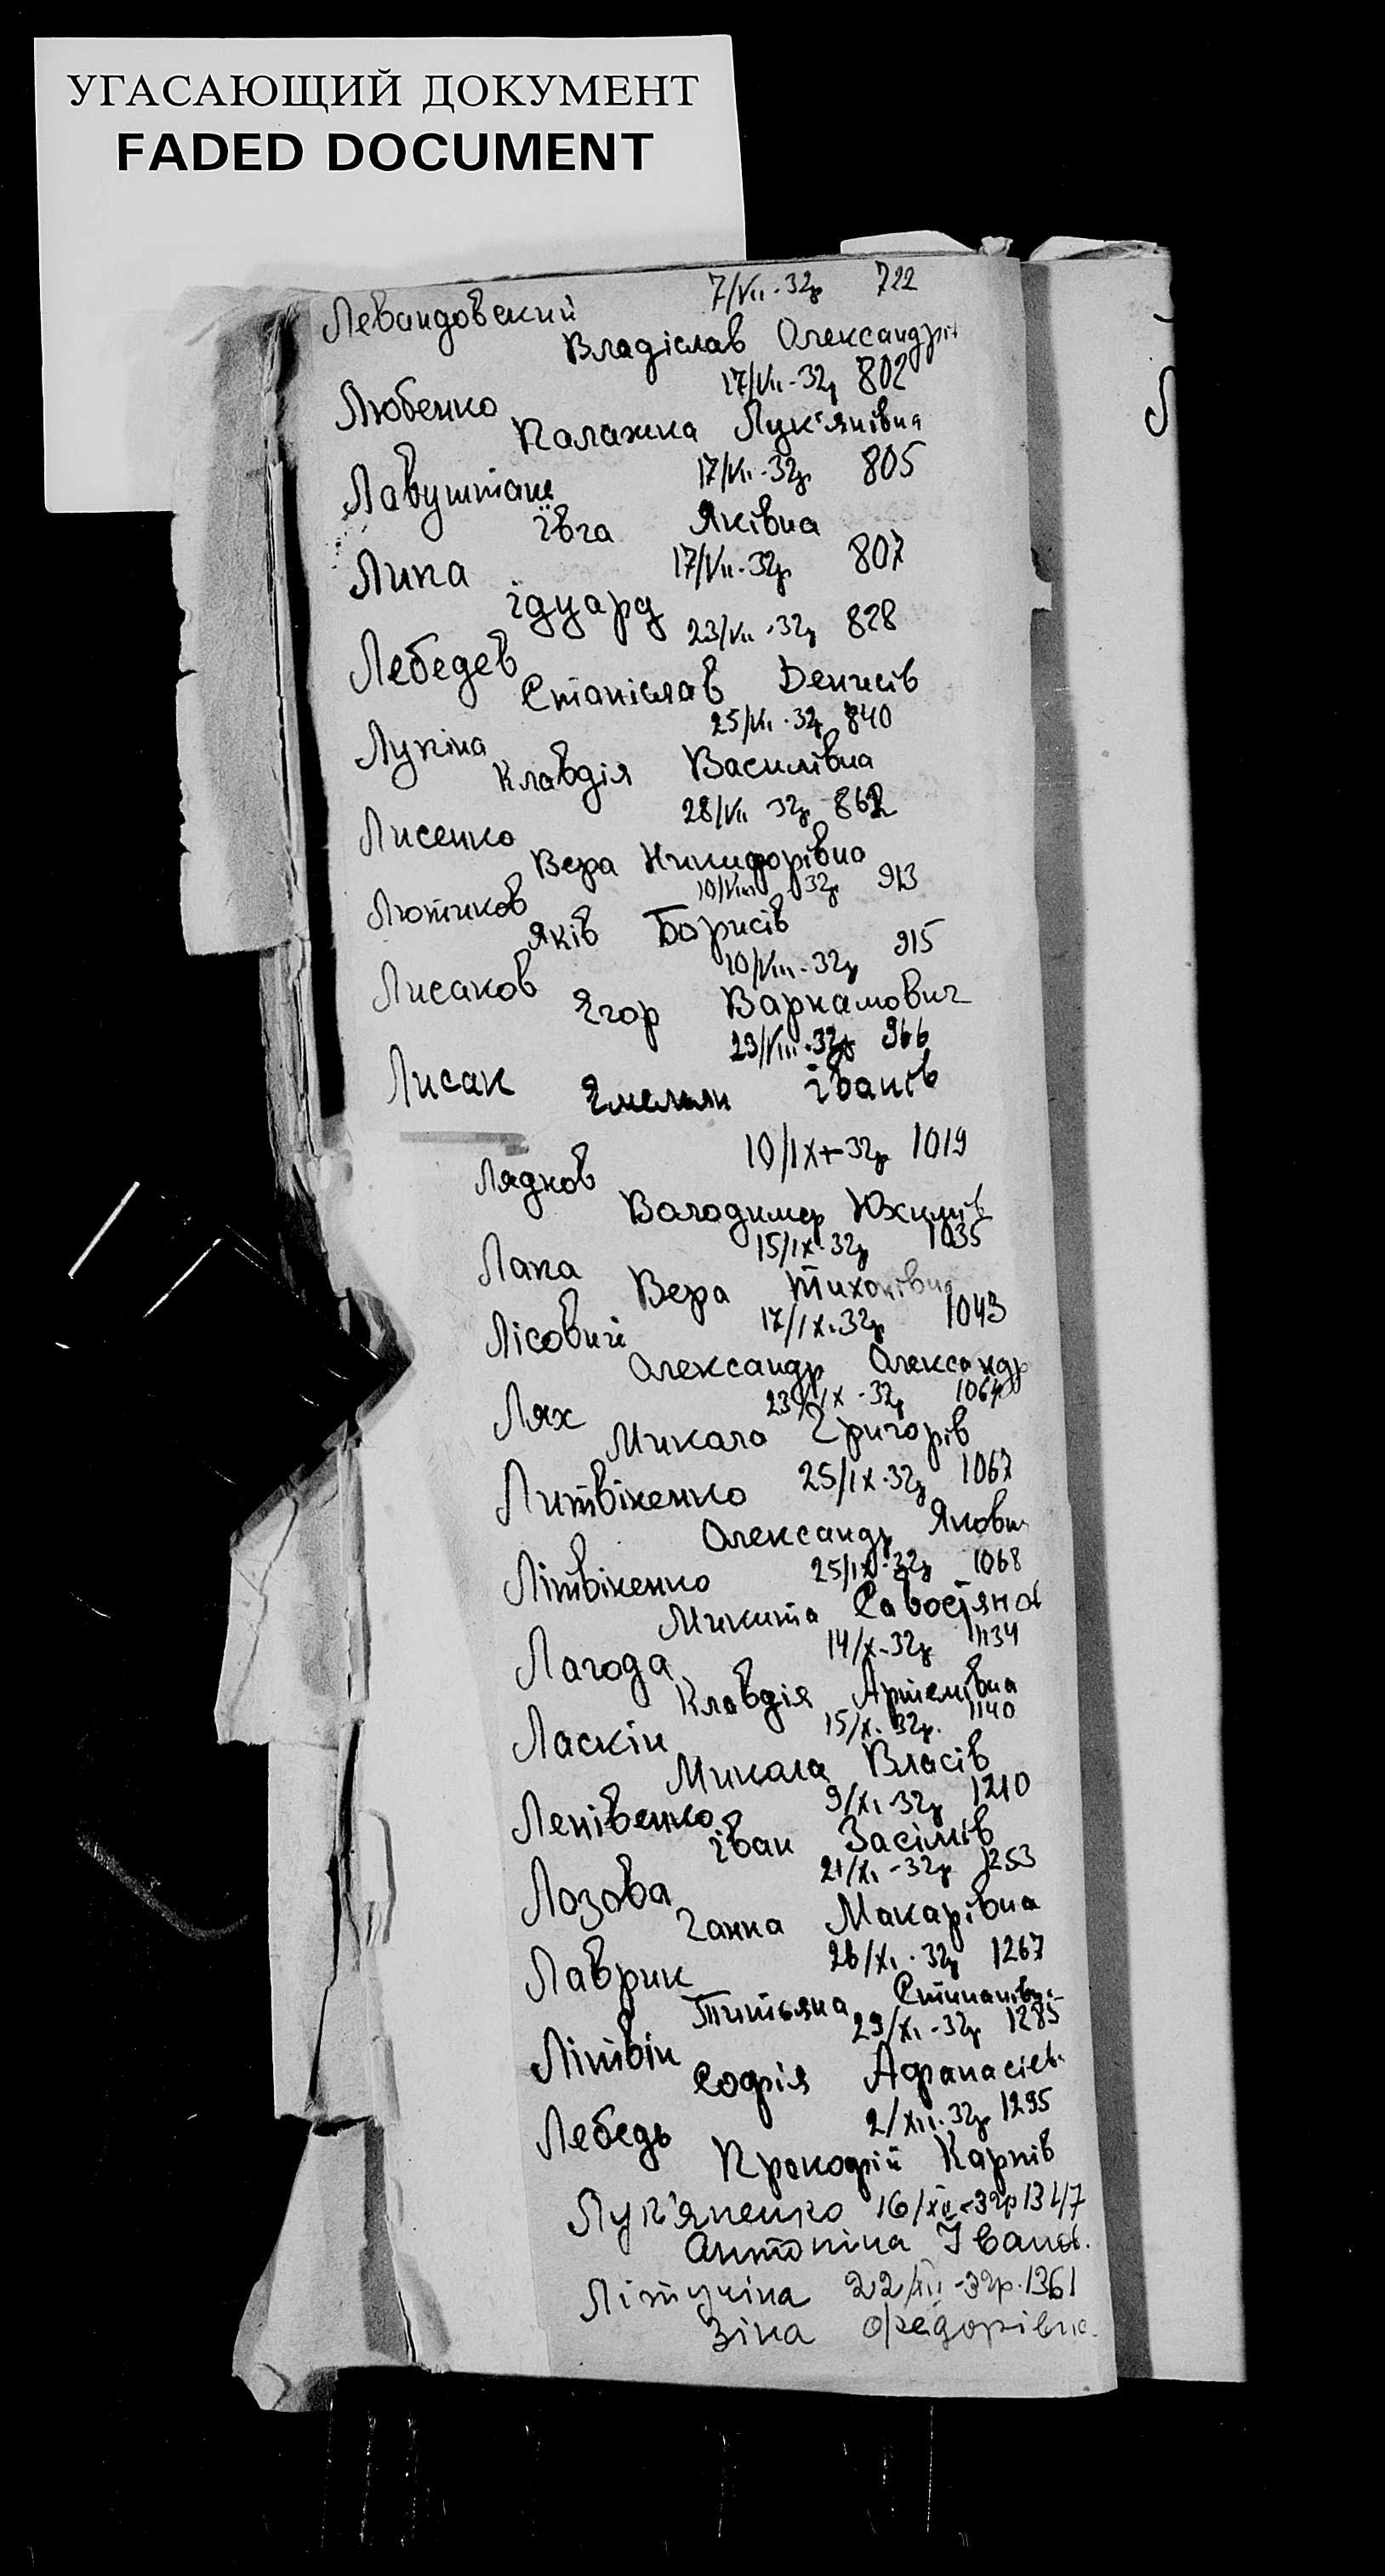 УГАСАЮЩИЙ ДОКУМЕНТ
FADED DOCUMENT
Левандовский 7/VII-32р 722
Владіслав Олександрів
Любенко 17/VII-32р 802
Палажка Лук'янівна
17/VII-32р 805
Ївга Яківна
Липа 17/VII-32р 807
Їдуард
Лебедев 23/VII-32р 828
Станіслав Денисів
Лукіна 25/VII-32р 840
Клавдія Василівна
Лисенко 28/VII 32р 862
Вера Никифорівна
Лютиков 10/VIII 32р 913
Яків Борисів
Лисаков 10/VIII-32р 915
Єгор Варламович
Лисак 29/VIII-32р 966
Ємельян Іванів
Лядков 10/IX-32р 1019
Володимер Юхимів
Лапа 15/IX-32р 1035
Вера Тихонівна
Лісовий 17/IX-32р 1043
Олександр Олександр
Лях 23/IX-32р 1064
Микола Григорів
Литвіненко 25/IX-32р 1067
Олександр Якович
Літвіненко 25/IX-32р 1068
Микита Савостянов
Лагода 14/X-32р 1134
Клавдія Артемівна
Ласкін 15/X-32р. 1140
Микола Власів
Ленівенко 9/XI-32р 1210
Їван Засімів
Лозова 21/XI-32р 1253
Ганна Макарівна
Лаврик 26/XI-32р 1267
Титьяна Степанівна
Літвін 29/XI-32р 1285
Софія Афанасієв
Лебедь 2/XII-32р 1295
Прокофій Карпів
Лук'яненко 16/XII-32р 1347
Антоніна Іванов.
22/XII-32р. 1361
Зіна Федорівна